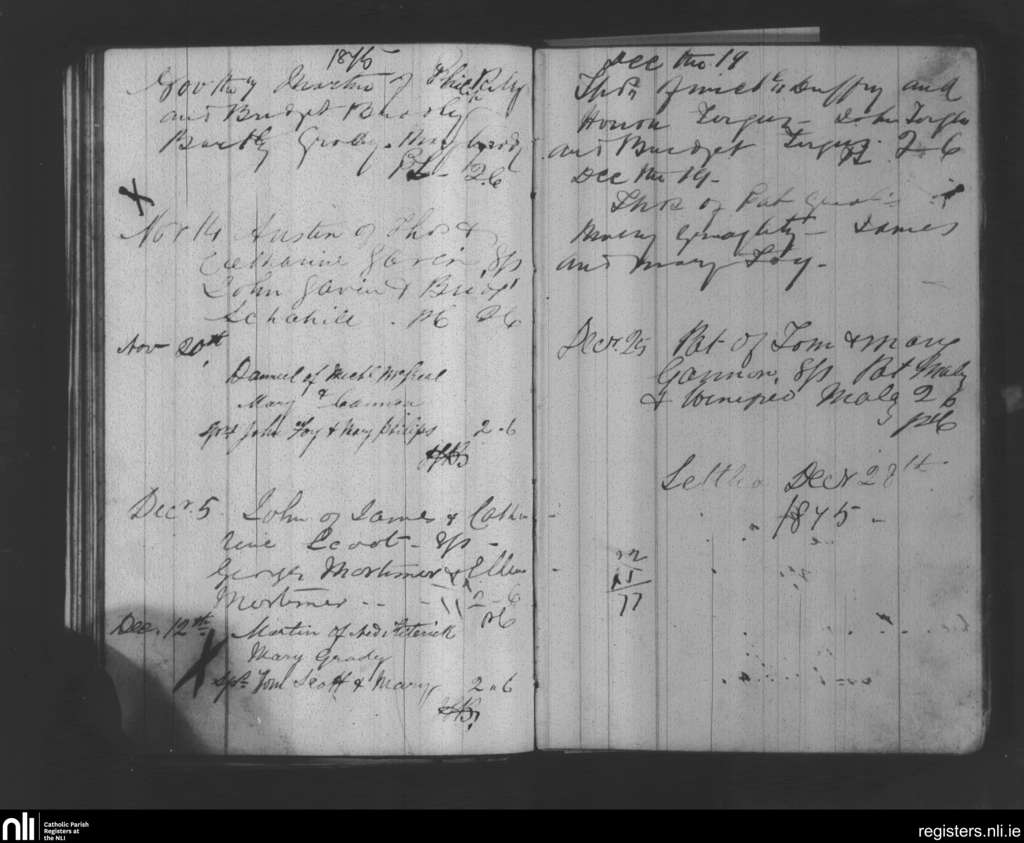 1875
Nov the 7 Martin of Phil Reily
and Bridget
Grady. Mary Grady
2.6
X
Novr 14 Austin of Thos &
Catharine Gavin Sps
John Gavin & Bridgt
Scahill. 2 6
Nov 20th
Daniel of Michl McGreal
Mary Cannon
Sprs John Foy & Mary Philips 2-6
Decr. 5 John of James & Catha-
rine Scoot - Sps -
George Mortimer & Ellen
Mortimer -- 2-6
Dec. 12th Martin of Ned
Mary Grady
Sps. Tom Scott & Mary 2.6
Dec the 19
Thos of Michl Duffy and
Honor Fergus - John Fergus
and Bridget Fergus 2-6
Dec the 19-
Thos of Pat
Mary Geraghty - James
and Mary Foy -
Decr. 25 Pat of Tom & Mary
Gannon. Sps Pat Maly
& Maly 2 6
Settled Decr 28th
1875
22
77
nli
Catholic Parish
Registers at
the NLI
registers.nli.ie